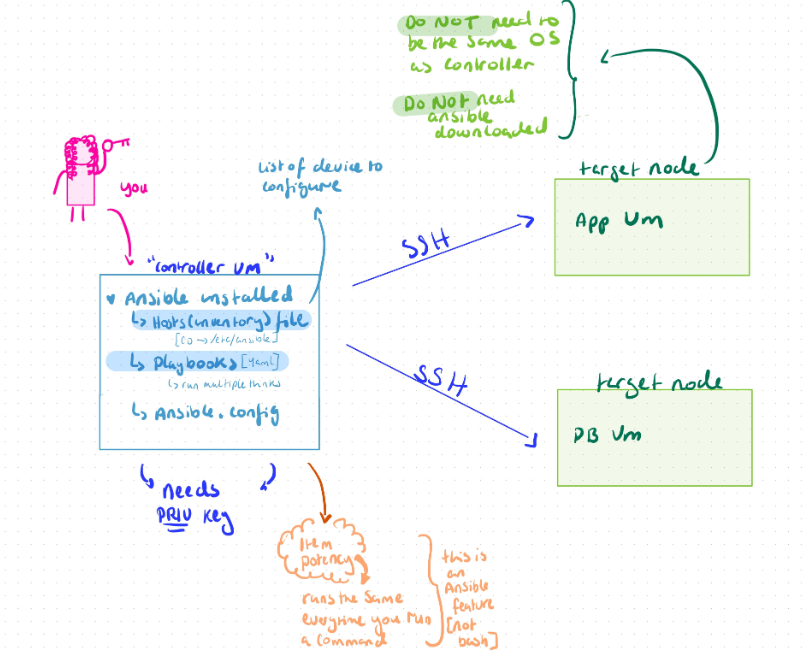 Do NOT need to
be the same OS
as controller
Do Not need
ansible
downloaded
you
List of device to
configure
target node
App Vm
SSH
"controller VM"
Ansible installed
↳ Hosts(inventory) file
[CD → /etc/ansible]
↳ Playbooks [yaml]
↳ run multiple thinks
↳ Ansible.config
SSH
target node
DB Vm
needs
PRIV key
Item
potency
runs the same
everytime you run
a command
this is
an
Ansible
feature
[not
bash]